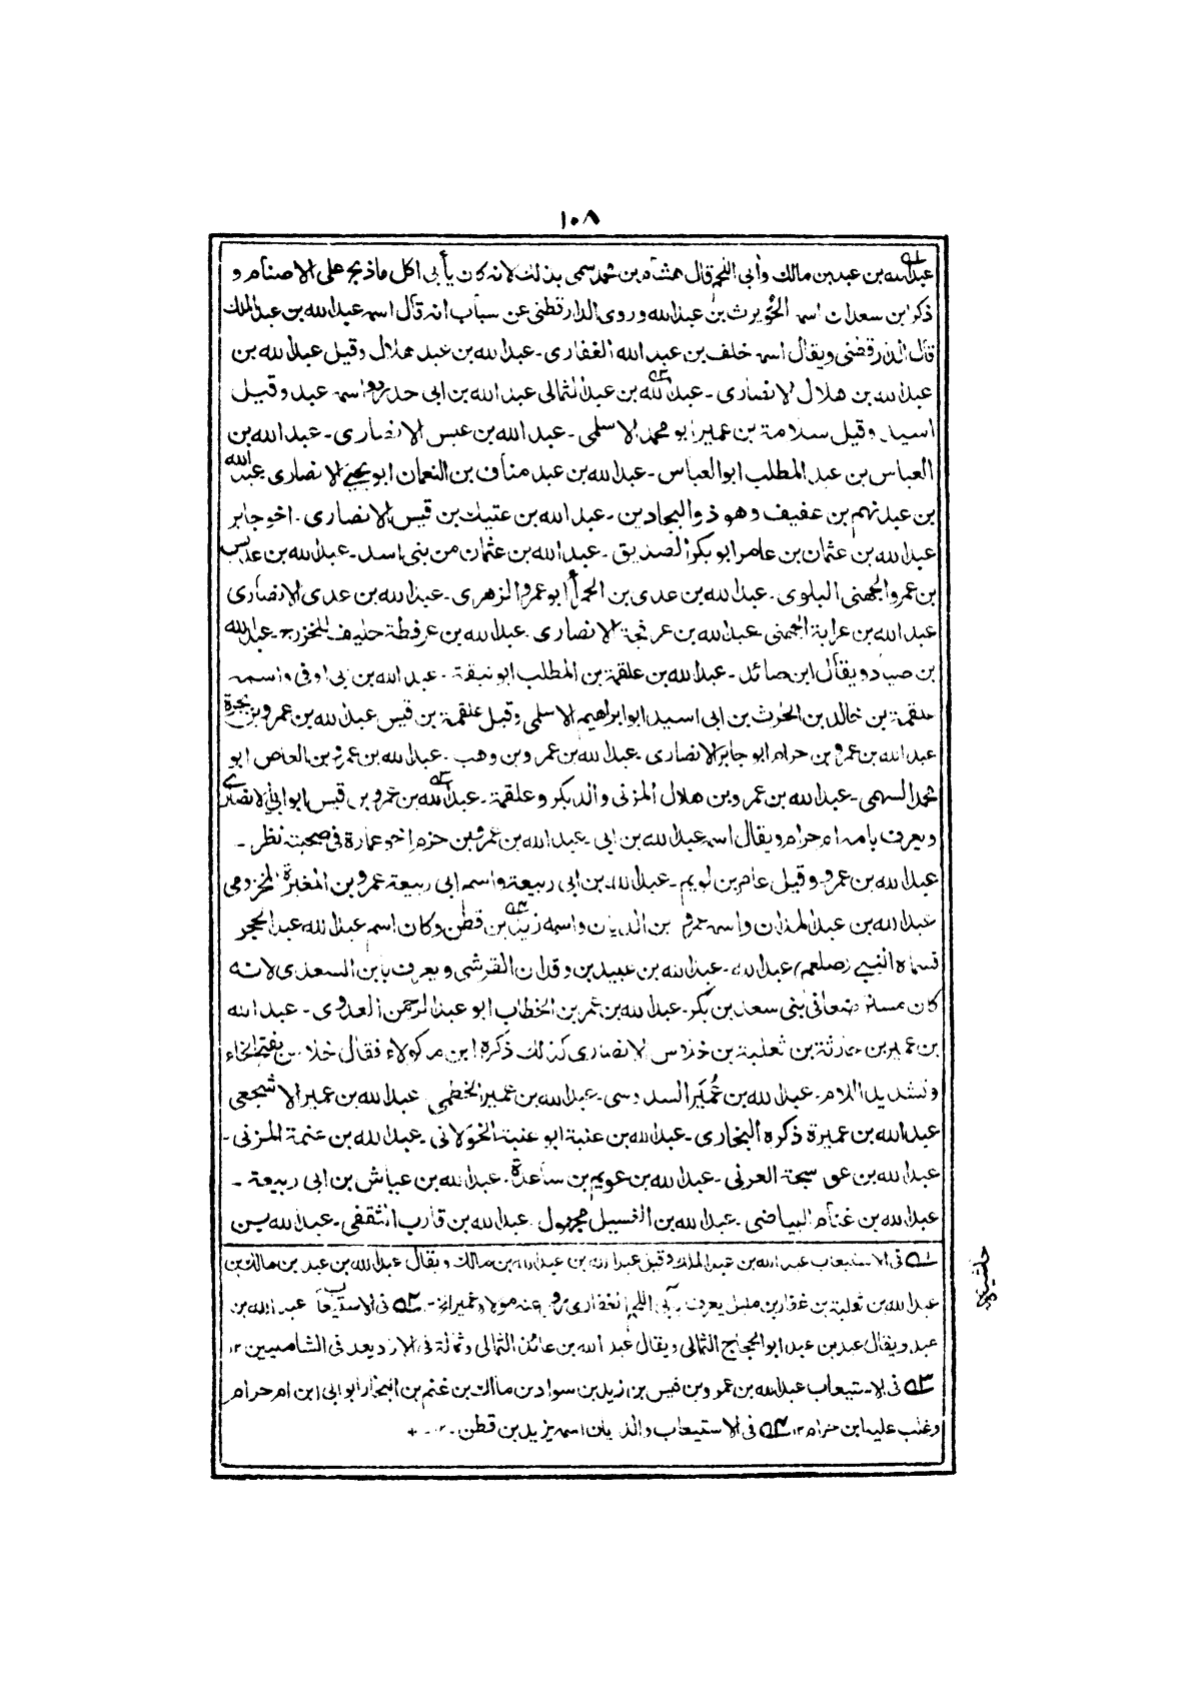 ١٠٨
عبدالله بن عبد بن مالك وأبي اللحم قال هشام بن محمد سمي بذلك لانه كان يأبى اكل ماذبح على الاصنام و
ذكر ابن سعد ان اسمه الحويرث بن عبدالله وروى الدارقطني عن سباب انه قال اسمه عبدالله بن عبدالملك
قال الدارقطني ويقال اسمه خلف بن عبدالله الغفاري ـ عبدالله بن عبد هلال وقيل عبدالله بن
عبدالله بن هلال الانصاري ـ عبدالله بن عبد الثمالي عبدالله بن ابي حدرد واسمه عبد وقيل
اسيد وقيل سلامة بن عمير ابو محمد الاسلمي ـ عبدالله بن عبس الانصاري ـ عبدالله بن
العباس بن عبد المطلب ابو العباس ـ عبدالله بن عبد مناف بن النعمان ابو يحيى الانصاري عبدالله
بن عبد نهم بن عفيف وهو ذوالبجادين ـ عبدالله بن عتيك بن قيس الانصاري ـ اخو جابر
عبدالله بن عثمان بن عامر ابو بكر الصديق ـ عبدالله بن عثمان من بني اسد ـ عبدالله بن عديس
بن عمرو الجهني البلوي ـ عبدالله بن عدي بن الحمرأ ابو عمرو الزهري ـ عبدالله بن عدي الانصاري
عبدالله بن عرابة الجهني عبدالله بن عرفجة الانصاري عبدالله بن عرفطة حليف للخزرج ـ عبدالله
بن صياد ويقال ابن صائد ـ عبدالله بن علقمة بن المطلب ابو نبقة ـ عبدالله بن ابي اوفى واسمه
علقمة بن خالد بن الحرث بن ابي اسيد ابو ابراهيم الاسلمي وقيل علقمة بن قيس عبدالله بن عمرو بن بجرة
عبدالله بن عمرو بن حرام ابو جابر الانصاري ـ عبدالله بن عمرو بن وهب ـ عبدالله بن عمرو بن العاص ابو
محمد السهمي ـ عبدالله بن عمرو بن هلال المزني والد بكر وعلقمة ـ عبدالله بن عمرو بن قيس ابو ابي الانصاري
ويعرف بامه ام حرام ويقال اسمه عبدالله بن ابي ـ عبدالله بن عمرو بن حزم اخو عمارة في صحبته نظر ـ
عبدالله بن عمرو وقيل عامر بن لويم ـ عبدالله بن ابي ربيعة واسم ابي ربيعة عمرو بن المغيرة المخزومي
عبدالله بن عبد المدان واسمه عمرو بن الديان واسمه زيد بن قطن وكان اسم عبدالله عبد الحجر
فسماه النبي (صلعم) عبدالله ـ عبدالله بن عبيد بن وقدان القرشي ويعرف بابن السعدي لانه
كان مسترضعا في بني سعد بن بكر ـ عبدالله بن عمر بن الخطاب ابو عبد الرحمن العدوي ـ عبدالله
بن عمير بن حارثة بن ثعلبة بن خلاس الانصاري كذلك ذكره ابن مركولاء فقال خلاس بفتح الخاء
وتشديد اللام ـ عبدالله بن عُمَير السدوسي ـ عبدالله بن عمير الخطمي عبدالله بن عمير الاشجعي
عبدالله بن عميرة ذكره البخاري ـ عبدالله بن عنبة ابو عنبة الخولاني ـ عبدالله بن عنمة المزني ـ
عبدالله بن عوسجة العرني ـ عبدالله بن عويم بن ساعدة ـ عبدالله بن عياش بن ابي ربيعة ـ
عبدالله بن غنام البياضي ـ عبدالله بن الغسيل مجهول عبدالله بن قارب الثقفي ـ عبدالله بن
حاشية
١ـه في الاستيعاب عبدالله بن عبد الملك وقيل عبدالله بن عبدالله بن مالك ويقال عبدالله بن عبد بن مالك بن
عبدالله بن ثعلبة بن غفار بن مليل يعرف بآبي اللحم الغفاري روى عنه مولاه عمير ٢ـه في الاستيعاب عبدالله بن
عبد ويقال عبد بن عبد ابو الحجاج الثمالي ويقال عبدالله بن عائذ الثمالي وثمالة في الازد يعد في الشاميين ١٢
٣ـه في الاستيعاب عبدالله بن عمرو بن قيس بن زيد بن سواد بن مالك بن غنم بن النجار ابو ابي ابن ام حرام
وغلب عليه ابن حرام ١٢ ٤ـه في الاستيعاب والديان اسمه يزيد بن قطن ـ ١٢ ـ +